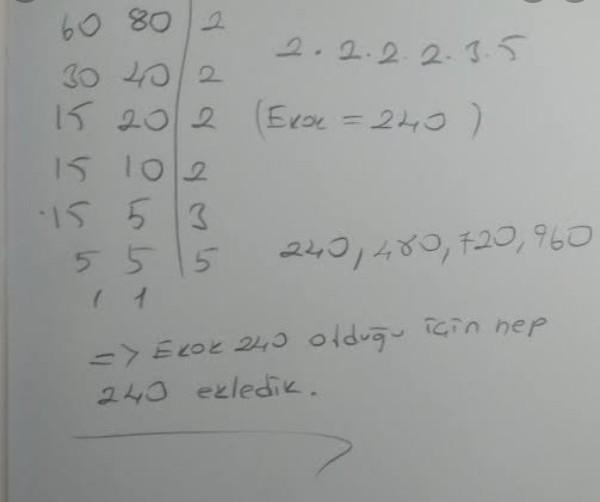 60 80 | 2
2 . 2 . 2 . 2 . 3 . 5
30 40 | 2
15 20 | 2 (Ekok = 240 )
15 10 | 2
15 5 | 3
5 5 | 5 240, 480, 720, 960
1 1
=> Ekok 240 olduğu için hep
240 ekledik.